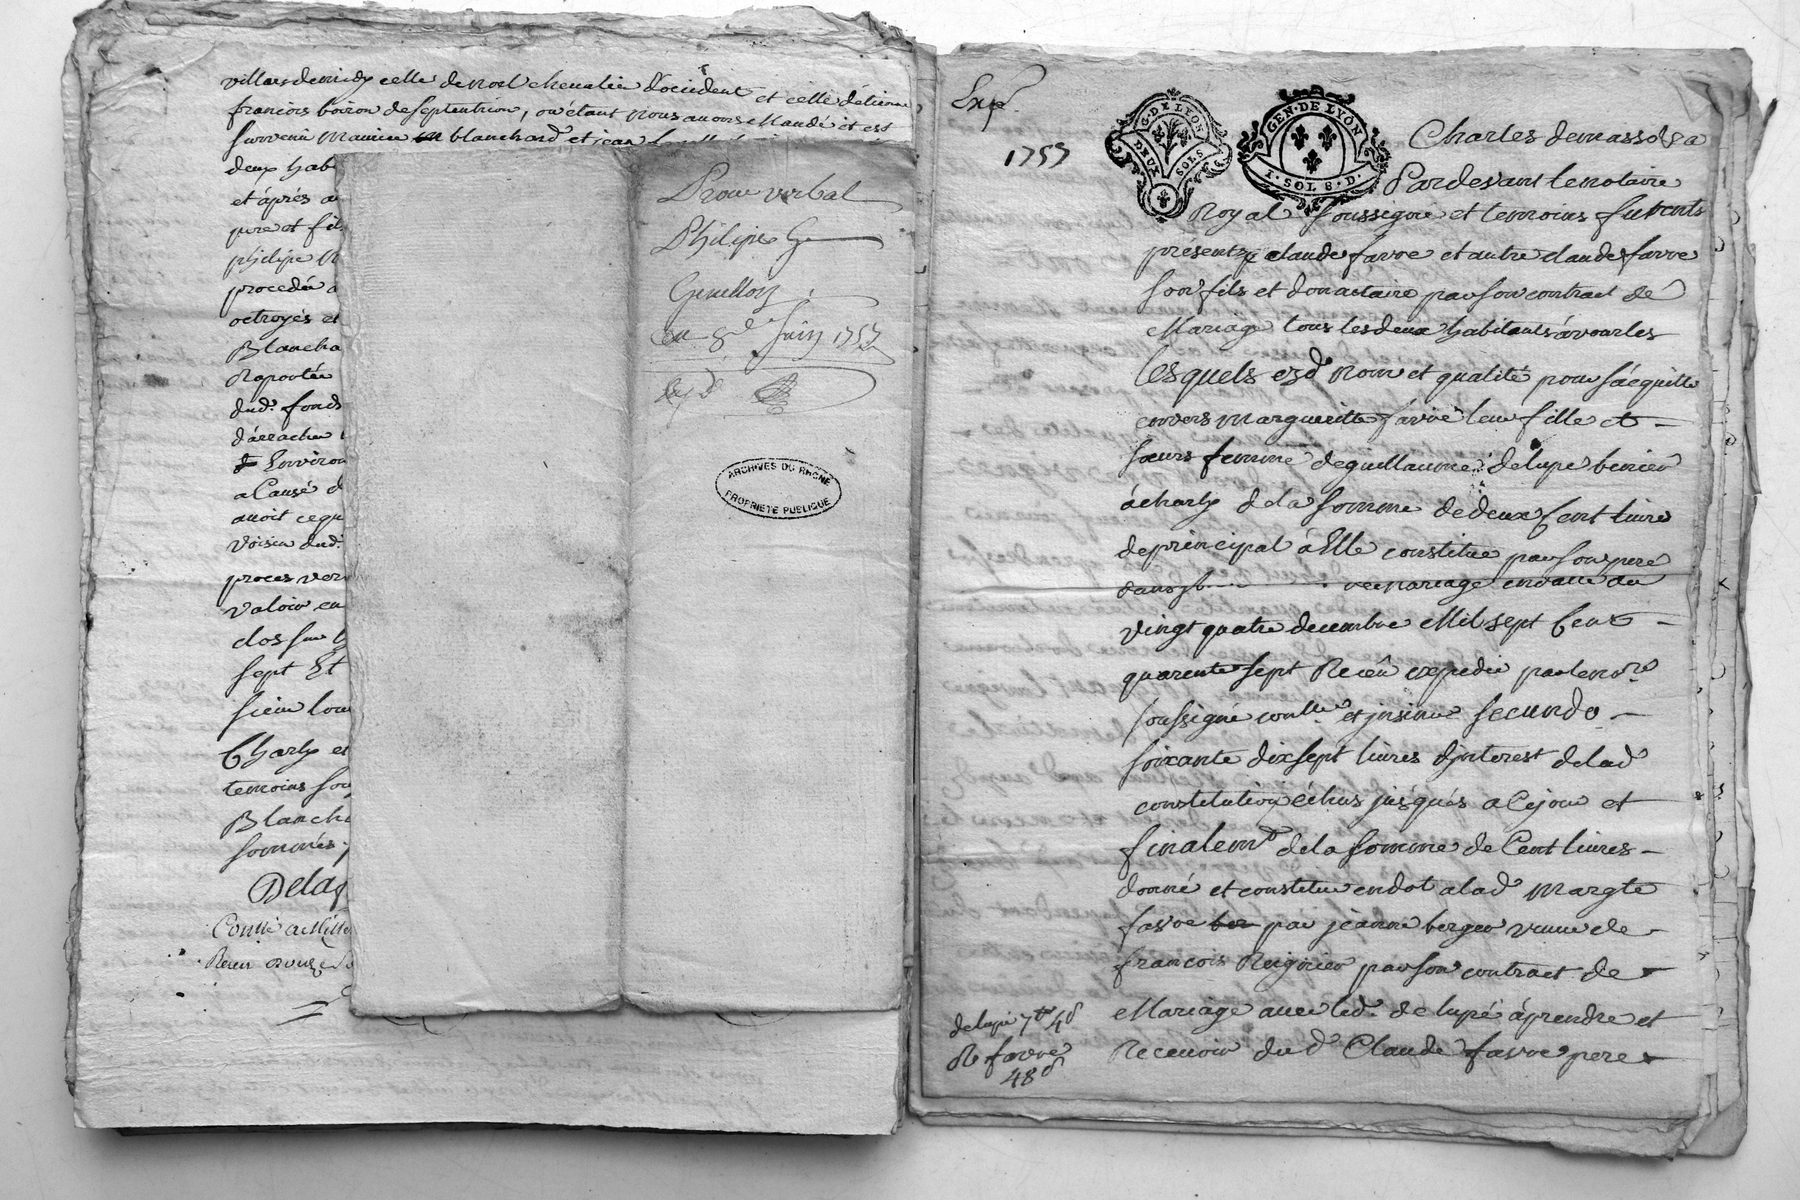 villars de midy celle de noel chevalier d'occident et celle d'etienne
françois boiron de septentrion, ou étant nous avons Mandé et est
survenu Maurice blanchard et jean
deux hab
et áprés a
pere et fil
philipe
procedér a
octroyés et
Blancha
Raportée
dud. fonds
d'arracher
Environ
a Causé d
avoit cequ
voisin dud.
proces ver
valoir en
clos sur
sept Et
sieur lou
Charly et
temoins sou
Blanch
sommés
Delaf
Conllé a Mille
Receu douze
Proces verbal
Philipe G
Genellon
du 8e Juin 1757
exp d
ARCHIVES DU RHONE
PROPRIETE PUBLIQUE
Exp.
1757
G. DE LYON
DEUX SOLS
GEN. DE LYON
1. SOL 8. D.
Charles demasso & a
Pardevant le notaire
Royal soussigné et temoins furent
presents claude favre et autre claude favre
son fils et donactaire par son contract de
Mariage tous les deux habitants à vourles
lesquels ezd. nom et qualité pour s'acquitter
envers marguerite favre leur fille et
soeurs femme de guillaume delupé
à charly de la somme de deux Cent livres
de principal à Elle constitué par son pere
dans s mariage en datte du
vingt quatre decembre Mil sept Cens
quarente sept Receu expedié par le nore
soussigné conllé et insinué secundo
soixante dix sept livres d'interest de lad.
constitution échus jusqués a Ce jour et
finalemt de la somme de Cent livres
donné et constitué en dot a lad. Margte
favre par jeanne berger veuve de
françois Reignier par son contract de
Mariage avec led. de lupé à prendre et
Recevoir du d. Claude favre pere
delupé 7tt 4s
R favre
48s